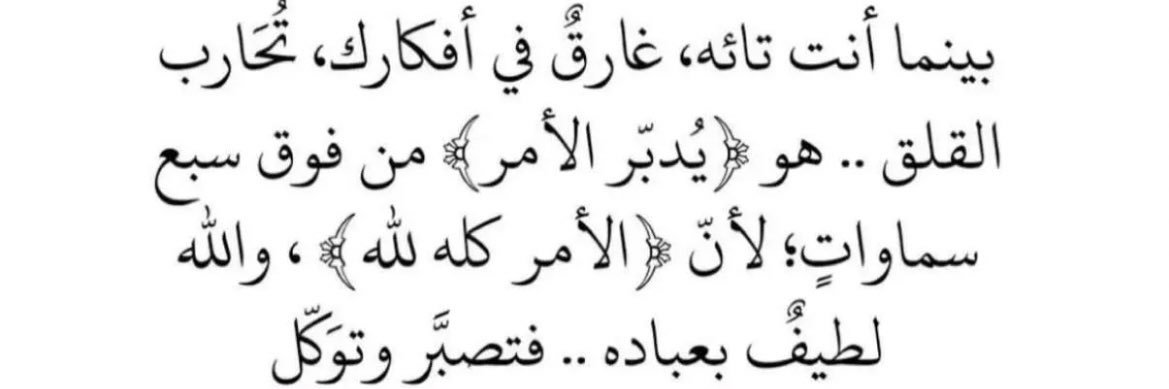 بينما أنت تائه، غارقٌ في أفكارك، تُحَارب
القلق .. هو ﴿يُدبّر الأمر﴾ من فوق سبع
سماواتٍ؛ لأنّ ﴿الأمر كله لله﴾ ، والله
لطيفٌ بعباده .. فتصبَّر وتوَكّل